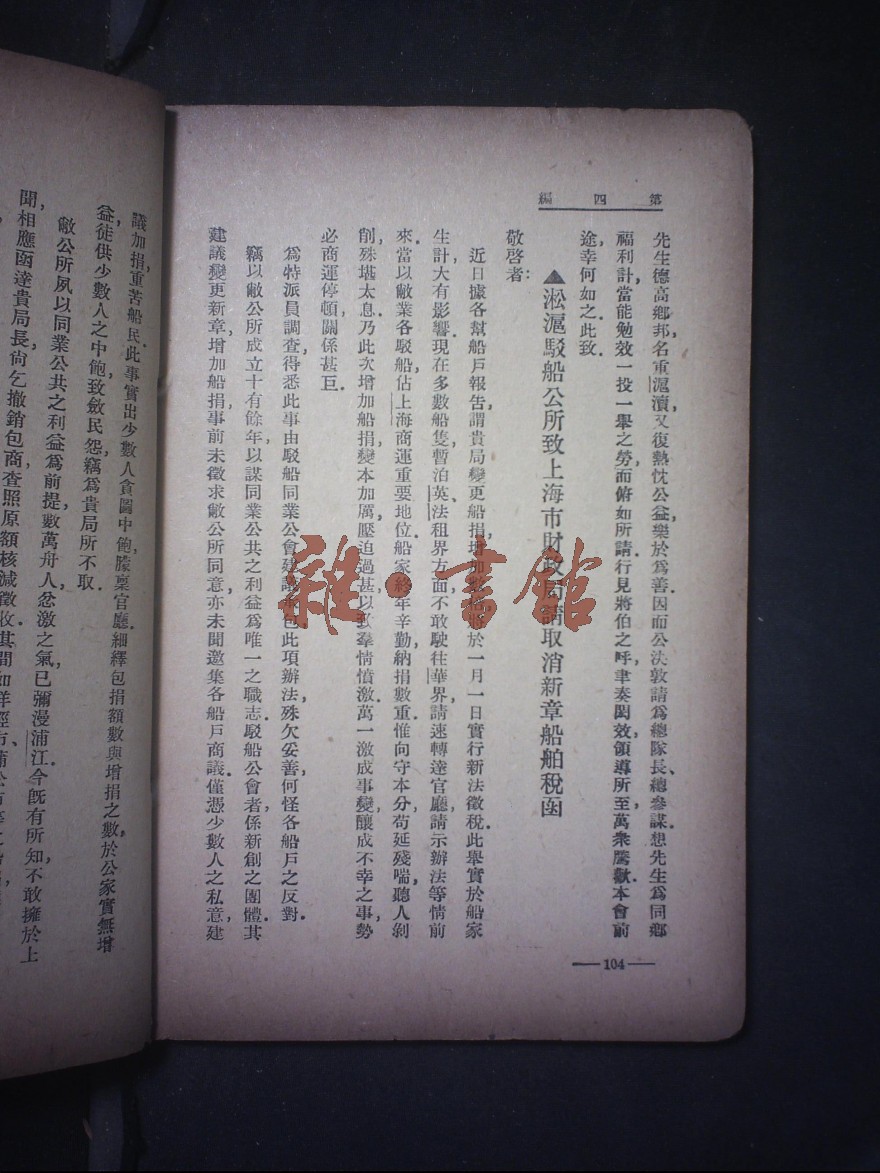 第四編
先生德高鄉邦，名重滬瀆，又復熱忱公益，樂於為善，因而公決敦請為總隊長、總參謀，想先生為同鄉
福利計，當能勉效一投一舉之勞，而俯如所請，行見將伯之呼，聿奏閎效，領導所至，萬衆騰歡，本會前
途，幸何如之，此致．
▲淞滬駁船公所致上海市財政局請取消新章船舶稅函
敬啓者：
近日據各幫船戶報告，謂貴局變更船捐，增加數倍，將於一月一日實行新法徵稅，此舉實於船家
生計大有影響，現在多數船隻，暫泊英、法租界方面，不敢駛往華界，請速轉達官廳，請示辦法等情前
來．當以敝業各駁船，佔上海商運重要地位，船家終年辛勤，納捐數重，惟向守本分，苟延殘喘，聽人剝
削，殊堪太息．乃此次增加船捐，變本加厲，壓迫過甚，以致羣情憤激，萬一激成事變，釀成不幸之事，勢
必商運停頓，關係甚巨．
為特派員調查，得悉此事由駁船同業公會建議承包，此項辦法，殊欠妥善，何怪各船戶之反對．
竊以敝公所成立十有餘年，以謀同業公共之利益為唯一之職志．駁船公會者，係新創之團體，其
建議變更新章，增加船捐，事前未徵求敝公所同意，亦未聞邀集各船戶商議，僅憑少數人之私意，建
—104—
議加捐，重苦船民，此事實出少數人貪圖中飽，朦稟官廳．細繹包捐額數與增捐之數，於公家實無增
益，徒供少數人之中飽，致斂民怨，竊為貴局所不取．
敝公所夙以同業公共之利益為前提，數萬舟人，忿激之氣，已彌漫浦江，今旣有所知，不敢擁於上
聞，相應函達貴局長，尙乞撤銷包商，查照原額核減徵收，其間如洋涇、
雜·書館